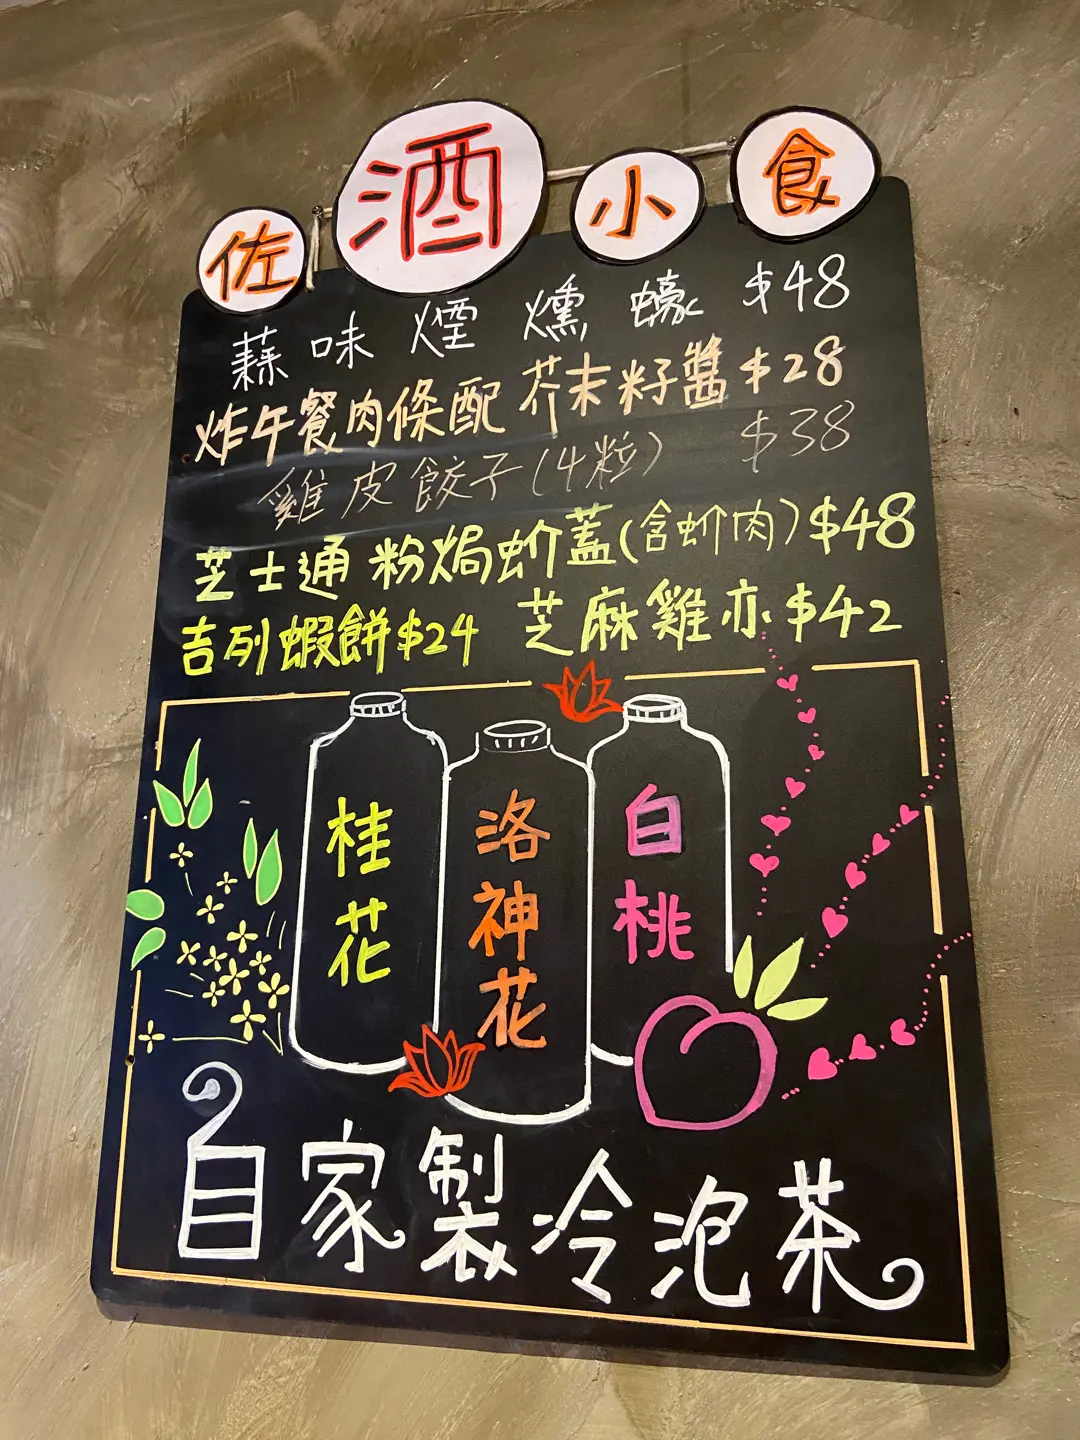 佐酒小食
蒜味煙燻蠔 $48
炸午餐肉條配芥末籽醬 $28
雞皮餃子(4粒) $38
芝士通粉焗蚧蓋(含蚧肉) $48
吉列蝦餅 $24 芝麻雞亦 $42
桂花
洛神花
白桃
自家製冷泡茶